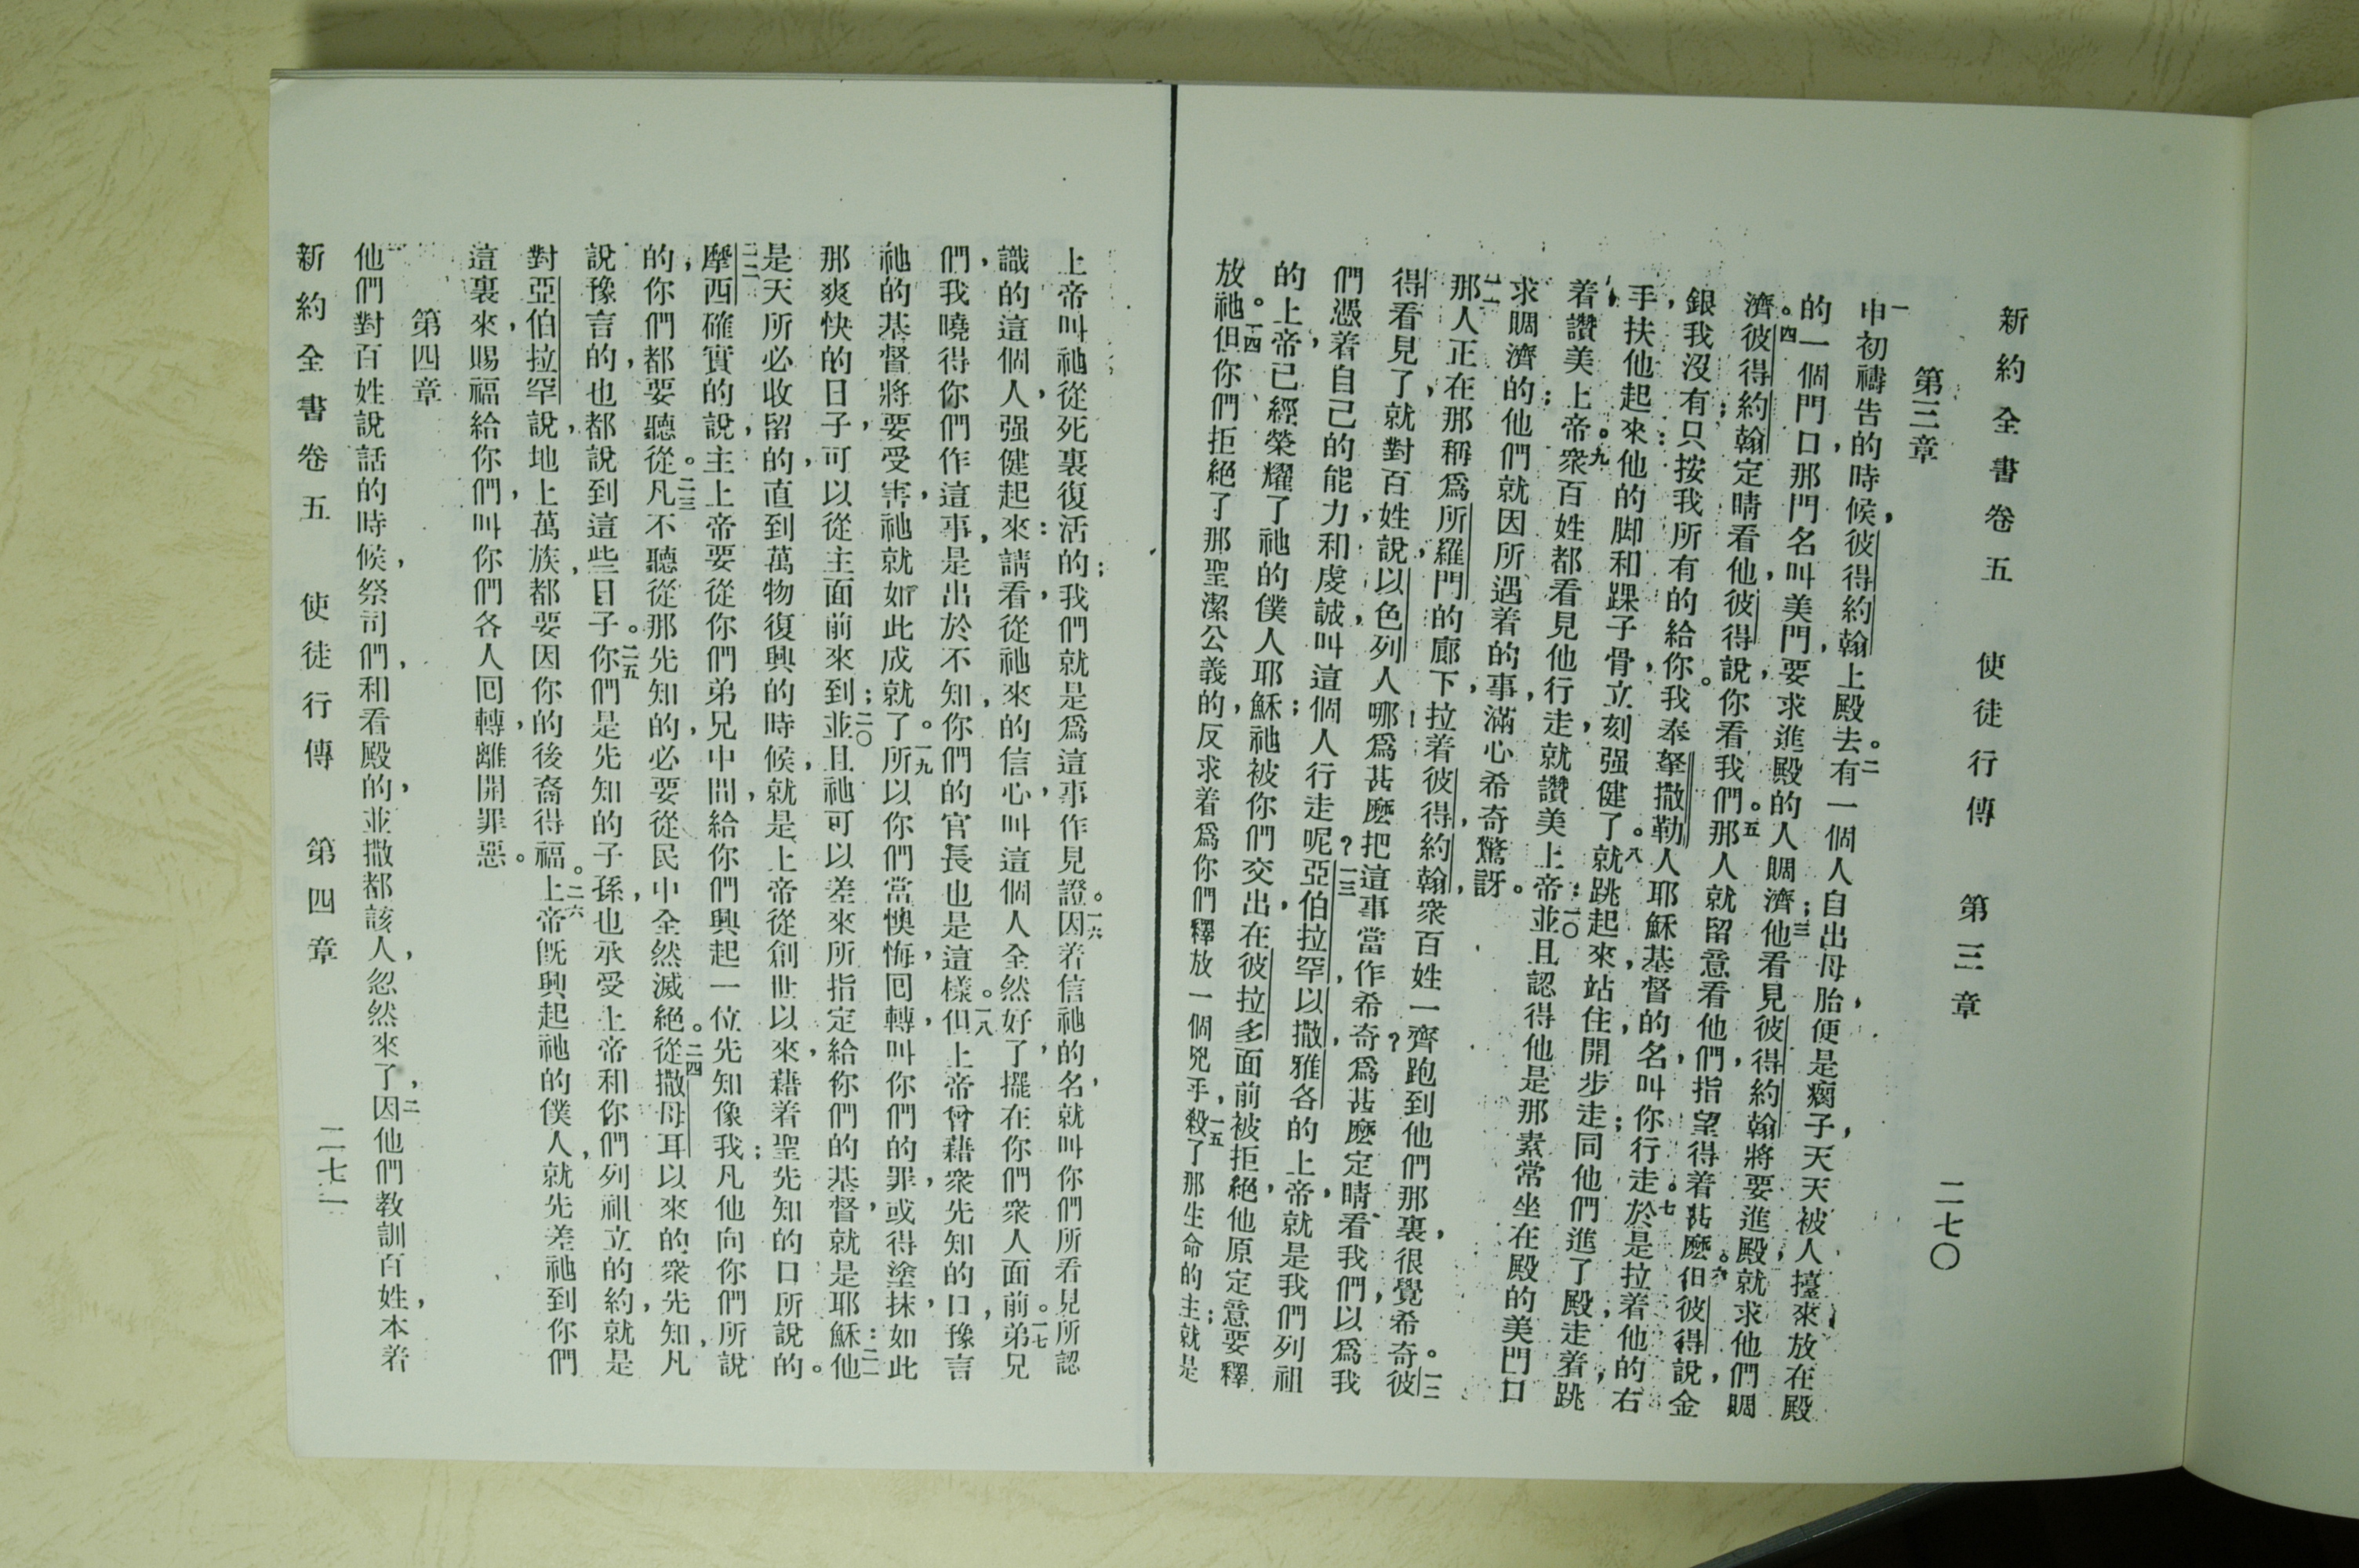 新約全書卷五 使徒行傳 第三章 二七〇
第三章
一申初禱告的時候，彼得約翰上殿去。二有一個人自出母胎，便是瘸子，天天被人擡來，放在殿
的一個門口，那門名叫美門，要求進殿的人賙濟他；三看見彼得約翰將要進殿，就求他們賙
濟。四彼得約翰定睛看他，彼得說，你看我們。五那人就留意看他們，指望得着甚麼。六但彼得說，金
銀我沒有；只按我所有的給你。我奉拏撒勒人耶穌基督的名，叫你行走。七於是拉着他的右
手，扶他起來：他的脚和踝子骨，立刻强健了。八就跳起來，站住，開步走；同他們進了殿，走着，跳
着，讚美上帝。九衆百姓都看見他行走，就讚美上帝：一〇並且認得他是那素常坐在殿的美門口
求賙濟的；他們就因所遇着的事，滿心希奇驚訝。
一一那人正在那稱爲所羅門的廊下，拉着彼得，約翰，衆百姓一齊跑到他們那裏，很覺希奇。一二彼
得看見了，就對百姓說，以色列人哪！爲甚麼把這事當作希奇？爲甚麼定睛看我們，以爲我
們憑着自己的能力，和虔誠，叫這個人行走呢？一三亞伯拉罕，以撒，雅各的上帝，就是我們列祖
的上帝，已經榮耀了祂的僕人耶穌；祂被你們交出，在彼拉多面前被拒絕，他原定意要釋
放祂。一四但你們拒絕了那聖潔公義的，反求着爲你們釋放一個兇手，一五殺了那生命的主；就是
上帝叫祂從死裏復活的；我們就是爲這事作見證。一六因着信祂的名，就叫你們所看見所認
識的這個人，强健起來：請看，從祂來的信心，叫這個人全然好了，擺在你們衆人面前。一七弟兄
們，我曉得你們作這事，是出於不知，你們的官長也是這樣。一八但上帝曾藉衆先知的口，豫言
祂的基督將要受害，祂就如此成就了。一九所以你們當懊悔，囘轉，叫你們的罪，或得塗抹，如此
那爽快的日子，可以從主面前來到；二〇並且祂可以差來所指定給你們的基督，就是耶穌：二一他
是天所必收留的，直到萬物復興的時候，就是上帝從創世以來，藉着聖先知的口所說的。
二二摩西確實的說，主上帝要從你們弟兄中間，給你們興起一位先知像我；凡他向你們所說
的，你們都要聽從。二三凡不聽從那先知的，必要從民中全然滅絕。二四從撒母耳以來的衆先知，凡
說豫言的，也都說到這些日子。二五你們是先知的子孫，也承受上帝和你們列祖立的約，就是
對亞伯拉罕說，地上萬族，都要因你的後裔得福。二六上帝旣興起祂的僕人，就先差祂到你們
這裏來，賜福給你們，叫你們各人囘轉，離開罪惡。
第四章
一他們對百姓說話的時候，祭司們，和看殿的，並撒都該人，忽然來了，二因他們教訓百姓，本着
新約全書卷五 使徒行傳 第四章 二七一